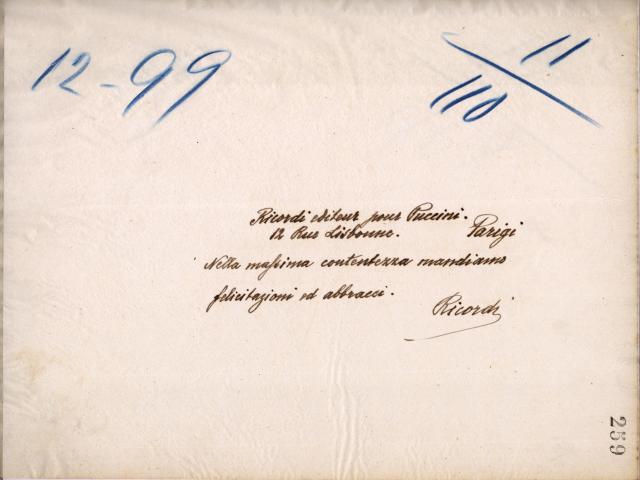 12-99
11
110
Ricordi editeur pour Puccini.
12 Rue Lisbonne. Parigi
Nella massima contentezza mandiamo
felicitazioni ed abbracci.
Ricordi
259